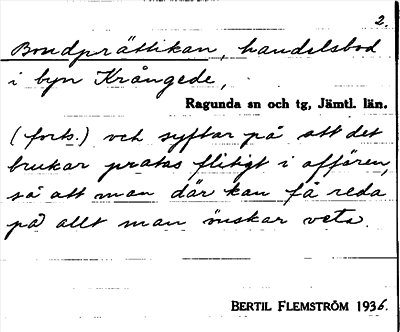 2.
Bondprättikan, handelsbod
i byn Krångede,
Ragunda sn och tg, Jämtl. län.
(forts.) och syftar på att det
brukar pratas flitigt i affären,
så att man där kan få reda
på allt man önskar veta.
BERTIL FLEMSTRÖM 1936.